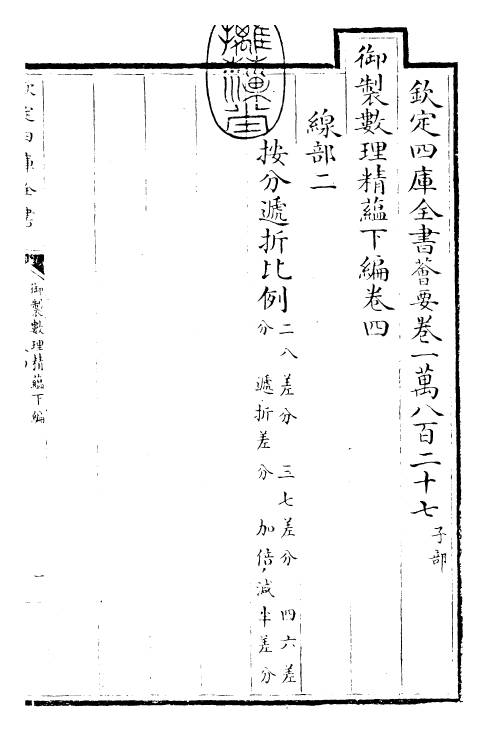 欽定四庫全書薈要卷一萬八百二十七 子部
御製數理精蘊下編卷四
線部二
按分遞折比例
二八差分 三七差分 四六差
分 遞折差分 加倍減半差分
欽定四庫全書
御製數理精蘊下編
一
摛藻堂